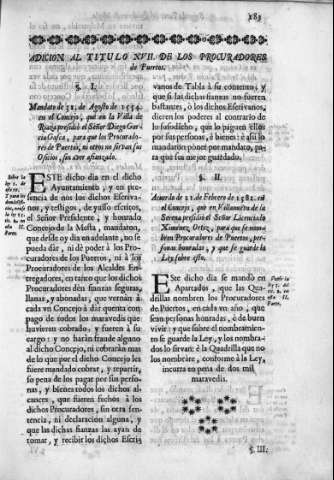 183
ADICION AL TITULO XVII. DE LOS PROCURADORES
de Puertos.
§. I.
Mandato de 31. de Agosto de 1554.
en el Concejo, que en la Villa de
Riaza presidió el Señor Diego Gar-
cia
para que los Procurado-
res de Puertos, no
sirvan sus
Oficios, sin aver afianzado.
ESTE dicho dia en el dicho
Ayuntamiento, y en pre-
sencia de nos los dichos Escriva-
nos, y testigos, de yuso escritos,
el Señor Presidente, y honrado
Concejo de la Mesta, mandaron,
que desde oy dia en adelante, no se
pueda dar, ni dé poder à los Pro-
curadores de los Puertos, ni à los
Procuradores de los Alcaldes En-
tregadores, en tanto que los dichos
Procuradores dèn fianzas seguras,
llanas, y abonadas, que vernàn à
cada un Concejo à dàr quenta con
pago de todos los maravedis que
huvieren cobrado, y fueren à su
cargo: y no haràn fraude alguno
al dicho Concejo, ni cobraràn mas
de lo que por el dicho Concejo les
fuere mandado cobrar, y repartir,
so pena de los pagar por sus perso-
nas, y bienes todos los dichos al-
cances, que fueren fechos à los
dichos Procuradores, sin otra sen-
tencia, ni declaracion alguna, y
que las dichas fianzas las ayan de
tomar, y recibir los dichos Escri-
vanos de Tabla à su contento; y
que si las dichas fianzas no fueren
bastantes, ò los dichos Escrivanos,
dieren los poderes al contrario de
lo susodicho, que lo paguen ellos
por sus personas, è bienes: è assi lo
mandaron poner por mandato, pa-
ra que sus mrds. guardado.
§. II.
Acuerdo de 21. de Febrero de 1582. en
el Concejo, que en Villanueva de la
Serena presidió el Señor Licenciado
Ximenez, Ortiz, para que se nom-
bren Procuradores de Puertos, per-
sonas honradas, y que se guarde la
Ley, sobre esto.
ESte dicho dia se mandò en
Apartados, que las Qua-
drillas nombren los Procuradores
de Puertos, en cada un año, que
sean personas honradas, è de buen
vivir: y que sobre el nombramien-
to se guarde la Ley, y los nombra-
dos lo sirvan: è la Quadrilla que no
los nombrare, conforme à la Ley,
incurra en pena de dos mil
maravedis.
§. III.